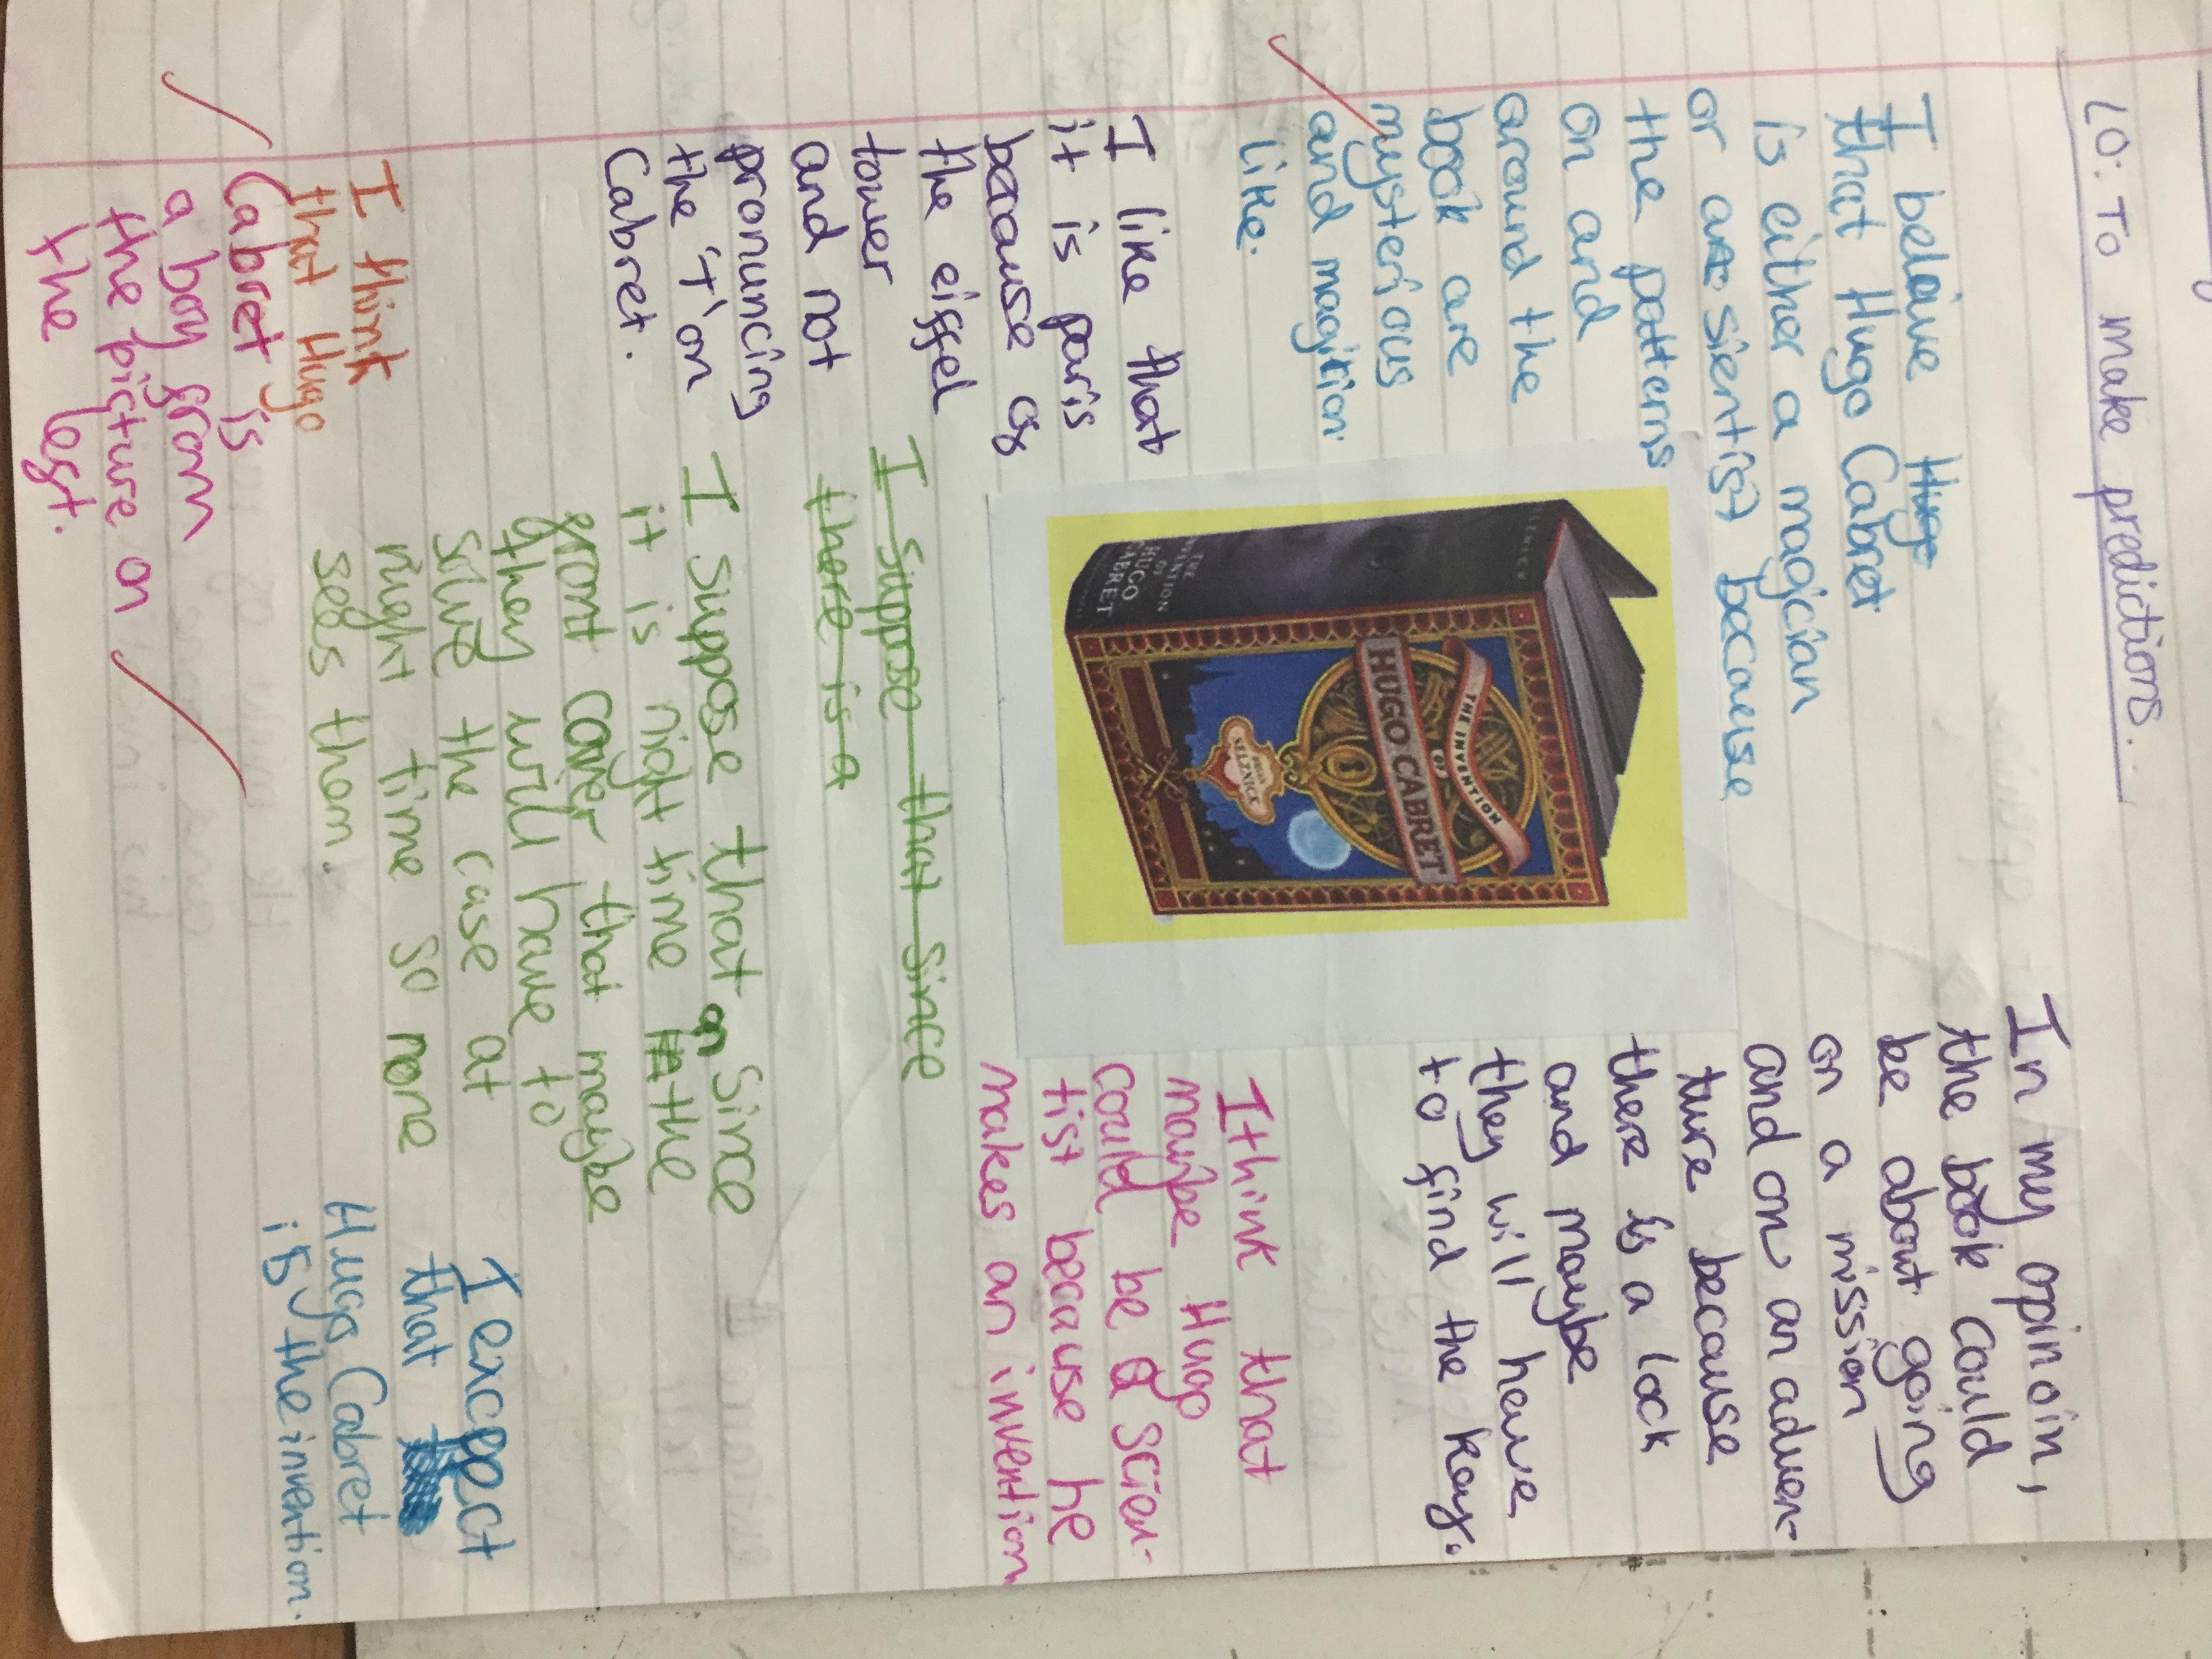 LO: To make predictions.
I beleive Hugo
that Hugo Cabret
is either a magician
or a sientist because
the patterns
on and
around the
book are
mysterious
and magition
like.
In my opinoin,
the book could
be about going
on a mission
and on an adven-
ture because
there is a lock
and maybe
they will have
to find the key.
THE INVENTION
OF
HUGO CABRET
BRIAN
SELZNICK
SELZNICK
THE
INVENTION
OF
HUGO
CABRET
I like that
it is paris
because as
the eiffel
tower
and not
pronuncing
the 'T' on
Cabret.
I think that
maybe Hugo
could be a scien-
tist because he
makes an invention
I suppose that since
there is a
I suppose that on since
it is night time the
front cover that maybe
they will have to
solve the case at
night time so none
sees them.
I think
that Hugo
Cabret is
a boy from
the picture on
the left.
I excpect
that
Hugo Cabret
is the invention.